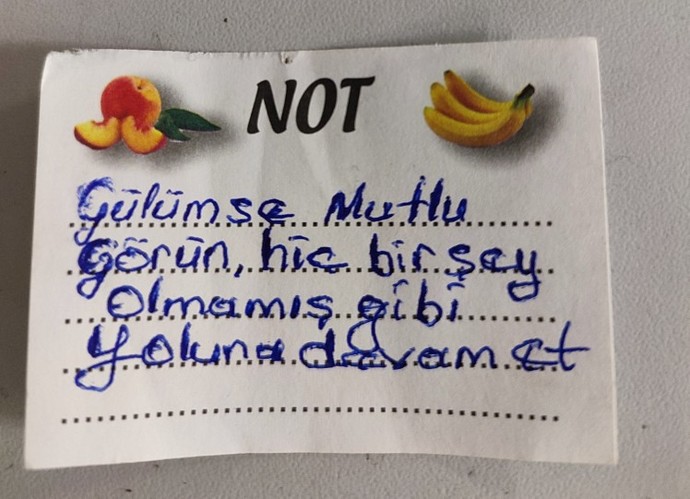 NOT
Gülümse Mutlu
Görün, hic bir şey
Olmamış gibi
Yoluna devam et